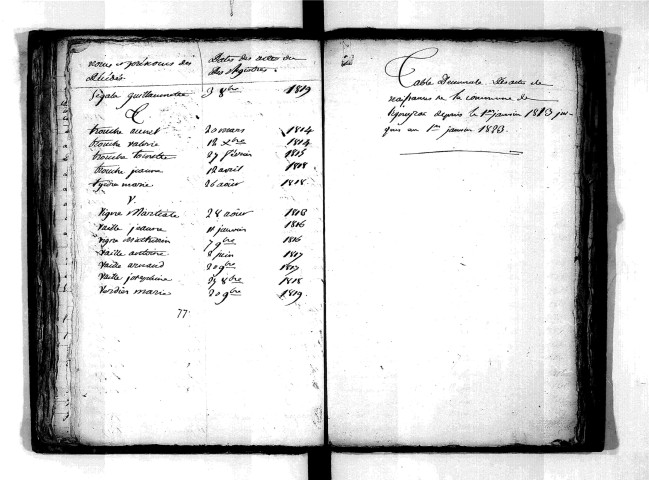 noms et prénoms des
Décédés.
Dates des actes ou
des Registres.
Ségala guillaumette 3 8bre 1819
T
trouche annet 20 mars 1814
trouche valerie 18 xbre 1814
trouche toinette 27 février 1815
trouche jeanne 12 avril 1818
marie 26 aout 1818
V.
Vigne Martiale 28 aout 1813
vaille jeanne 11 janvier 1816
vigne Mathurin 7 9bre 1816
vaille antoine 8 juin 1817
vaille arnaud 20 9bre 1817
vaille josephine 25 8bre 1818
Verdier marie 20 9bre 1819.
77.
Table Décennale Des actes de
naissances de la commune de
depuis le 1er janvier 1813 jus-
ques au 1er janvier 1823.